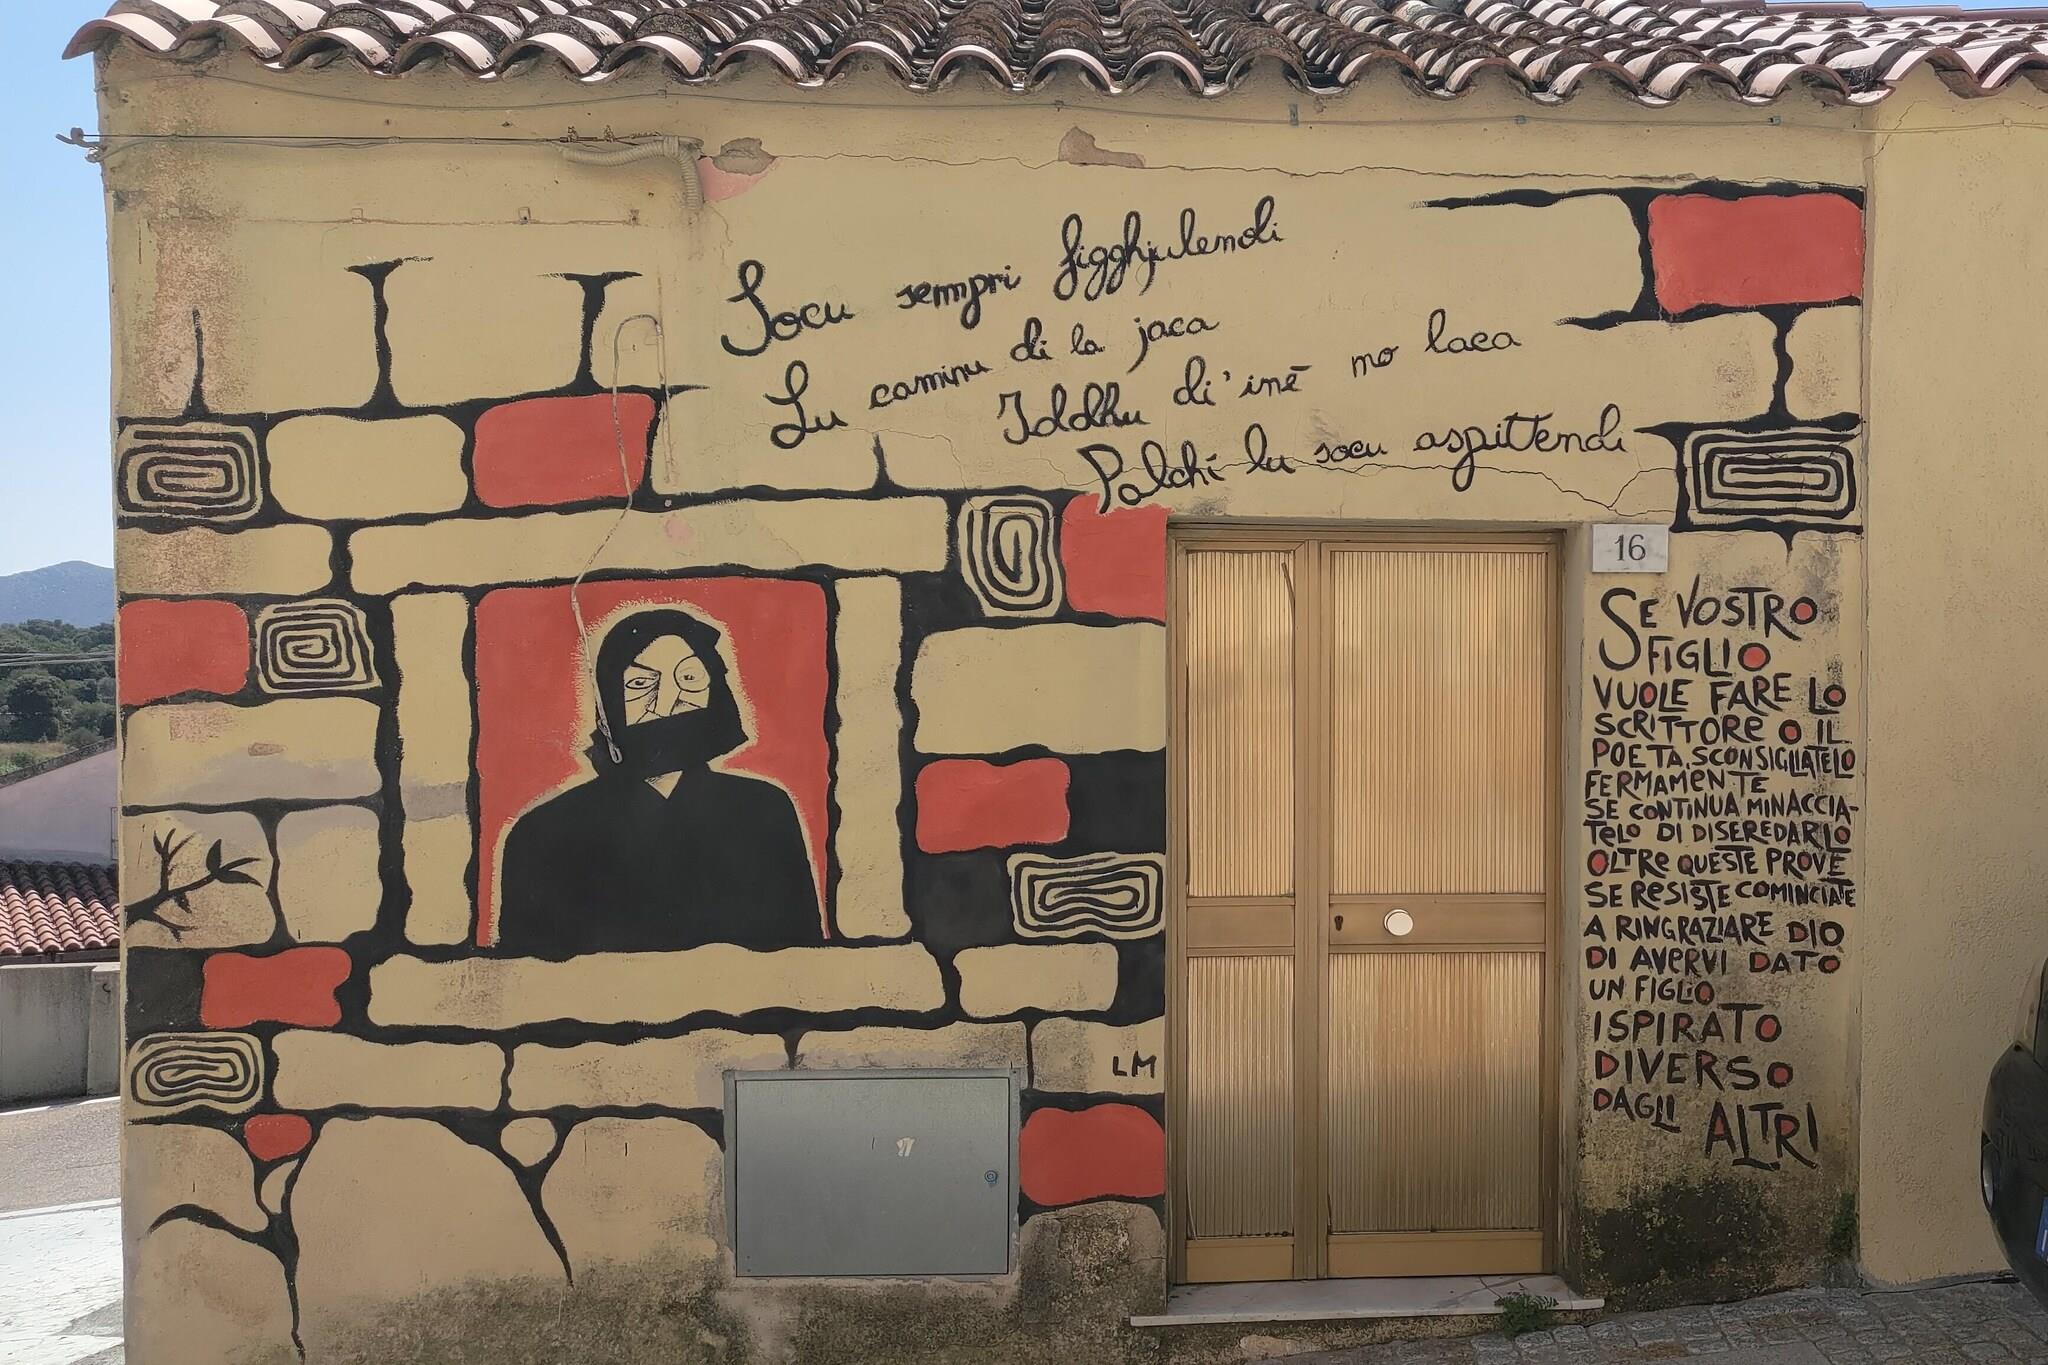 Socu sempri figghjulendi
Lu caminu di la jaca
Iddhu di' inè no laca
Palchì lu socu aspittendi
16
SE VOSTRO
FIGLIO
VUOLE FARE LO
SCRITTORE O IL
POETA, SCONSIGLIATELO
FERMAMENTE
SE CONTINUA MINACCIA-
TELO DI DISEREDARLO
OLTRE QUESTE PROVE
SE RESISTE COMINCIATE
A RINGRAZIARE DIO
DI AVERVI DATO
UN FIGLIO
ISPIRATO
DIVERSO
DAGLI ALTRI
LM